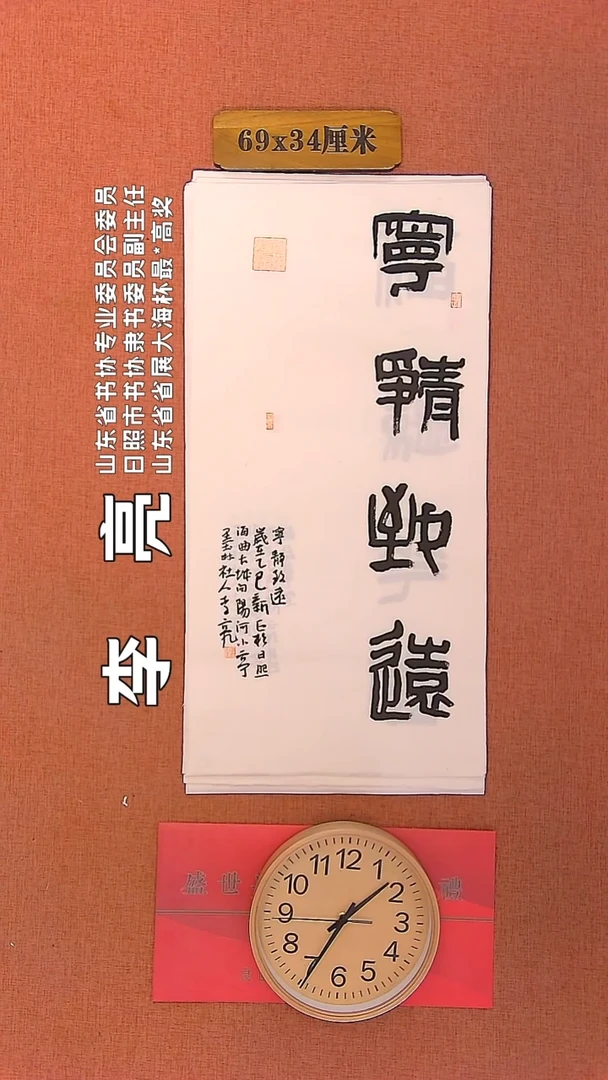 69x34厘米
寧靜致遠
寧靜致遠
歲在乙巳新正於日照
海曲大地向陽河小亭
墨舞社人李亮
山东省书协专业委员会委员
日照市书协隶书委员副主任
山东省省展大海杯最*高奖
李亮
盛世
禮
11 12 1
10 2
9 3
8 4
7 6 5